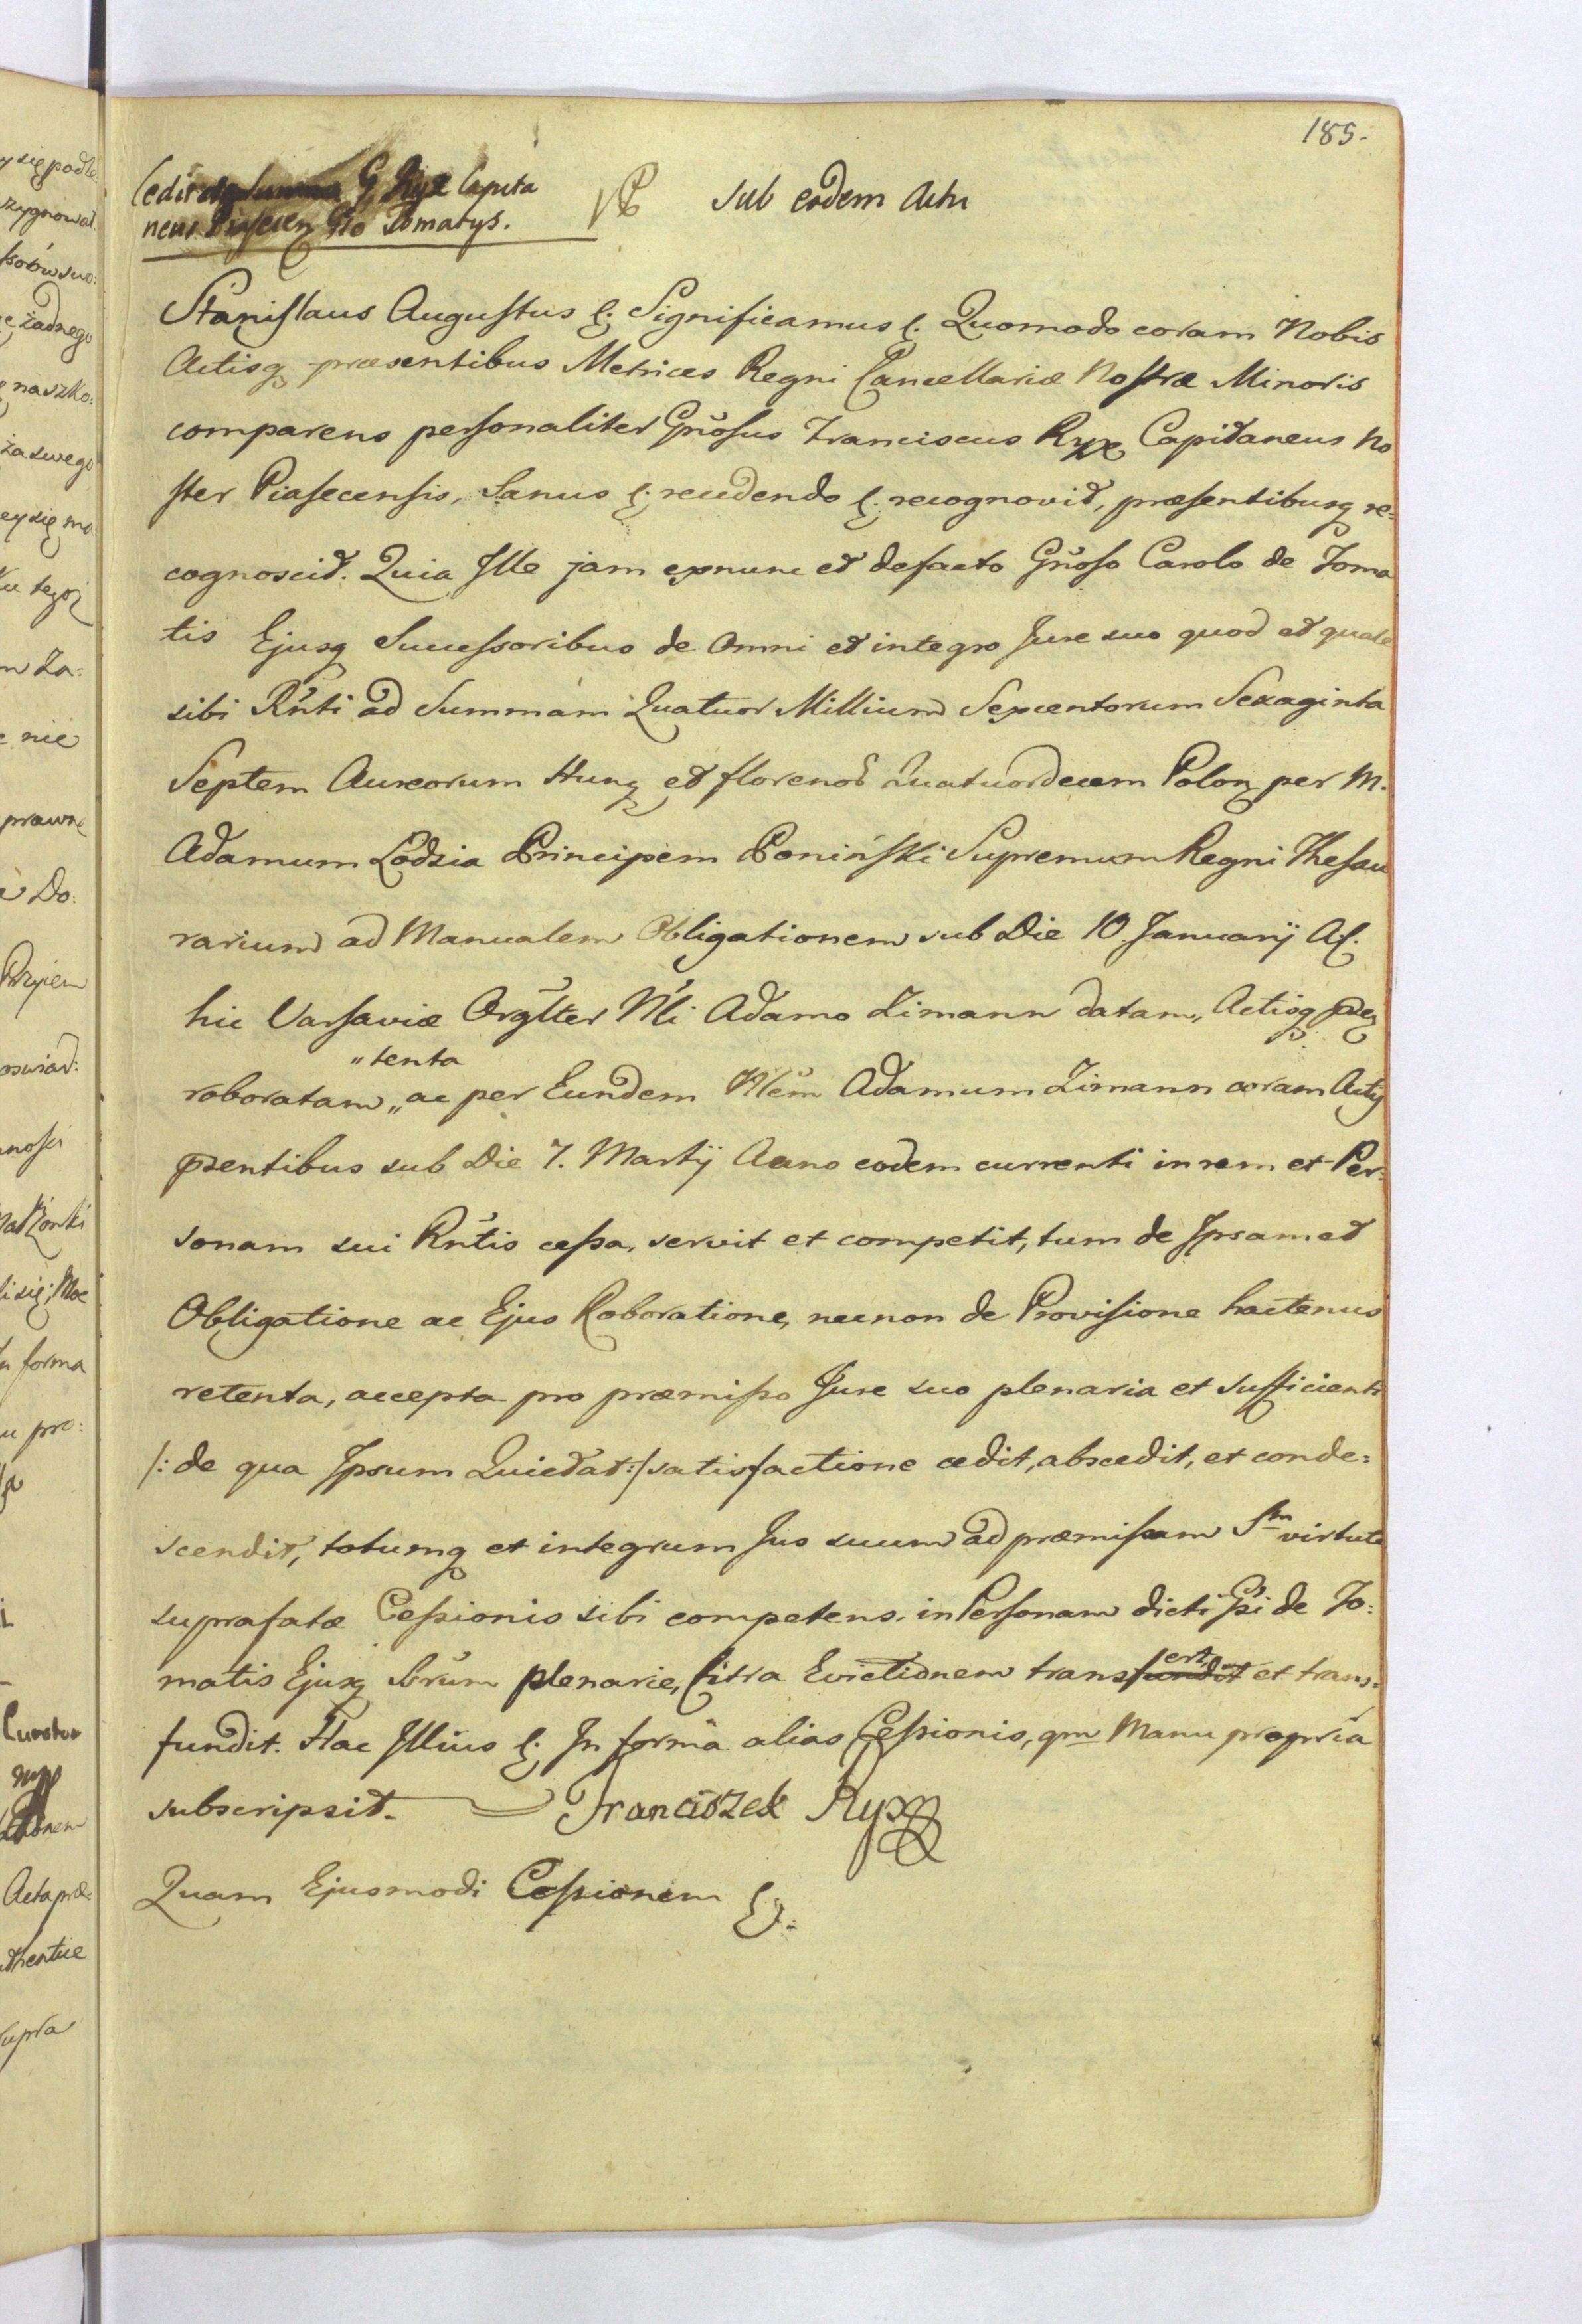 185.
Cedit de Summa G. Ryx Capita
neus Piasecen Gso Tomatys.
sub eodem Actu
Stanislaus Augustus &. Significamus &. Quomodo coram Nobis
Actisq præsentibus Metrices Regni Cancellariæ Nostræ Minoris
comparens personaliter Gnosus Franciscus Ryx Capitaneus No
ster Piasecensis, Sanus &. recedendo &. recognovit, præsentibusq re=
cognoscit. Quia Ille jam exnunc et defacto Gnoso Carolo de Toma
tis Ejusq Successoribus de Omni et integro Jure suo quod et quale
sibi Rnti ad Summam Quatuor Millium Sexcentorum Sexaginta
Septem Aureorum Hung et florenos Quatuordecem Polon per M.
Adamum Łodzia Principem Poniński Supremum Regni Thesau
rarium ad Manualem Obligationem sub Die 10 Januarij A&.
hic Varsaviæ Orgltter Nli Adamo Zimann datam, Actisq
"tenta
roboratam " ac per Eundem Nlem Adamum Zimann coram Actis
psentibus sub Die 7. Martij Anno eodem currenti in rem et Per=
sonam sui Rntis cessa, servit et competit, tum de Ipsamet
Obligatione ac Ejus Roboratione, necnon de Provisione hactenus
retenta, accepta pro præmisso Jure suo plenaria et sufficienti
/: de qua Ipsum Quietat :/ satisfactione cedit, abscedit, et conde=
scendit, totumq et integrum Jus suum ad præmissam Sm virtute
suprafatæ Cessionis sibi competens. in Personam dicti Gsi de To=
matis Ejusq Srum plenarie, Citra Evictionem transfert et trans=
fundit. Hac Illius &. In forma alias Cessionis, qm Manu propria
subscripsit. Franciszek Ryx
Quam Ejusmodi Cessionem &.